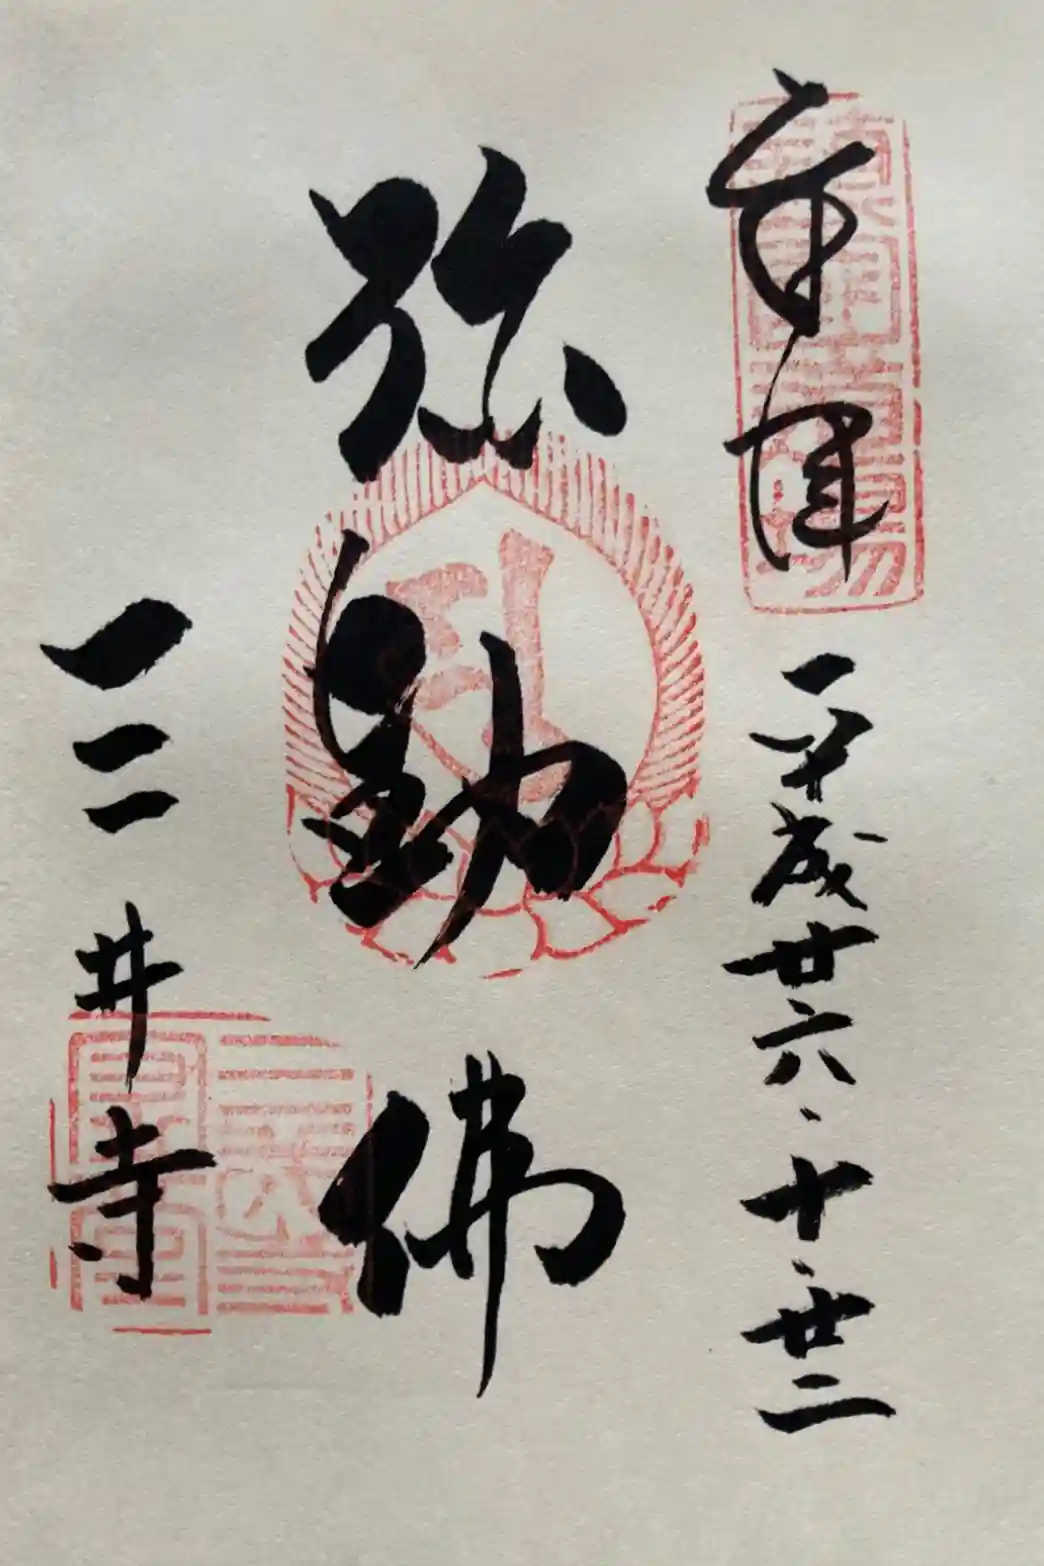 奉拝 平成廿六・十・廿二
弥勒佛
三井寺